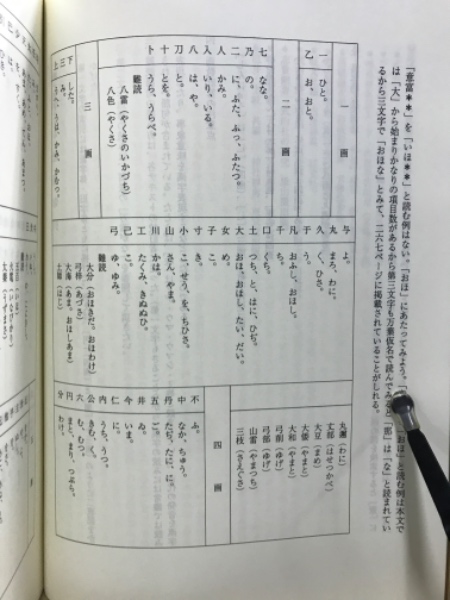 「意富＊＊」を「いほ＊＊」と読む例はない。「おほ」にあたってみよう。「おほ」と読む例は本文で
は「大」から始まりかなりの項目数があるから第三文字も万葉仮名で読んでみると「那」は「な」と読まれてい
るから三文字で「おほな」とみて、二六七ページに掲載されていることがしれる。
一 画
一 ひと。
乙 お、おと。
二 画
七 なな。
乃 の。
二 に、ふた、ふつ、ふたつ。
人
入 いり、いる。
八 は、や。
刀 と。
十 とを。
卜 うら、うらべ。
難読
八雷（やくさのいかづち）
八色（やくさ）
三 画
下 した。
三 み。
上 うへ、うは、かみ、かむつ。
与 よ。
丸 まろ、わに。
久 く、ひさ。
于 う。
凡 おふし、おほし。
千 ち。
口 くち。
土 つち、と、はに、ひぢ。
大 おほ、おほし、たい、だい。
女 め。
子 こ。
寸 き。
小 こ、せう、を、ちひさ。
山 さん、やま。
川 かは。
工 たくみ、きぬぬひ。
己 こ。
弓 ゆ、ゆみ。
難読
大分（おほきだ。おほわけ）
大海（あま、おほしあま）
土師（はじ）
丸邇（わに）
丈部（はせつかべ）
大豆（まめ）
大倭（やまと）
大和（やまと）
弓削（ゆげ）
弓部（ゆげ）
山雷（やまつち）
三枝（さえぐさ）
四 画
不 ふ。
中 なか、ちゅう。
丹 たぢ、たに、に。
五 ご。
井 ゐ。
今 いま。
仁 に。
内 うち、うつ。
公 きむ、く。
六 む、むつ。
円 まと、まり、つぶら。
分 わけ。